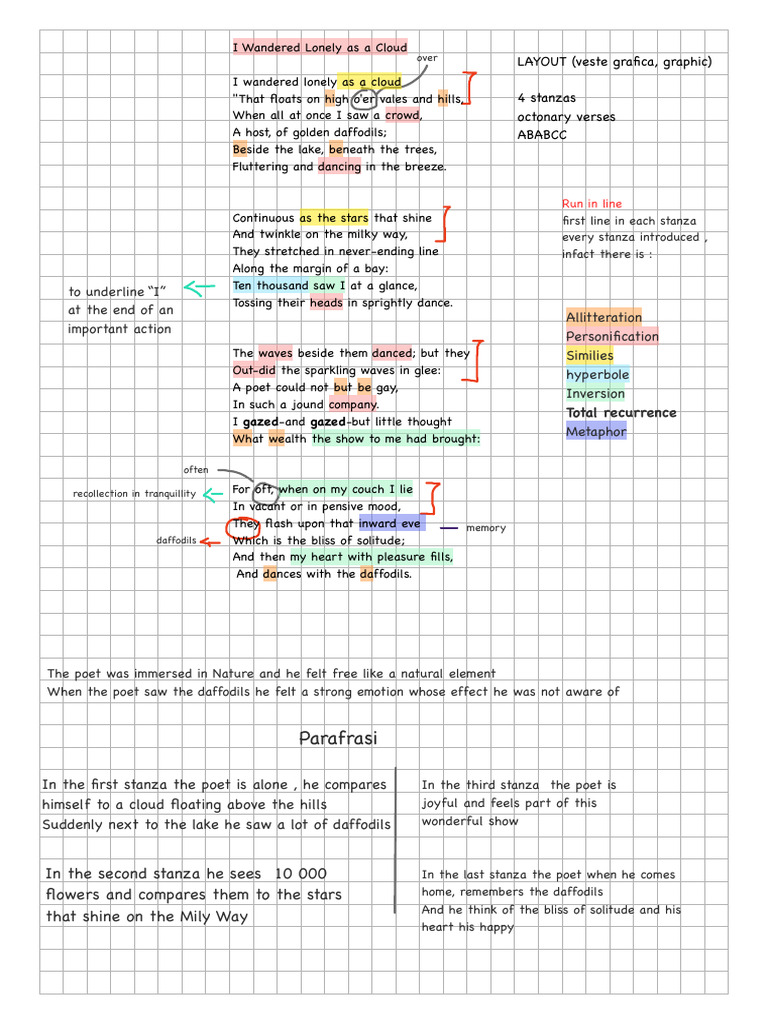 I Wandered Lonely as a Cloud
over
LAYOUT (veste grafica, graphic)
I wandered lonely as a cloud
"That floats on high o'er vales and hills,
When all at once I saw a crowd,
A host, of golden daffodils;
Beside the lake, beneath the trees,
Fluttering and dancing in the breeze.
4 stanzas
octonary verses
ABABCC
Continuous as the stars that shine
And twinkle on the milky way,
They stretched in never-ending line
Along the margin of a bay:
Ten thousand saw I at a glance,
Tossing their heads in sprightly dance.
Run in line
first line in each stanza
every stanza introduced ,
infact there is :
to underline "I"
at the end of an
important action
Allitteration
Personification
Similies
hyperbole
Inversion
Total recurrence
Metaphor
The waves beside them danced; but they
Out-did the sparkling waves in glee:
A poet could not but be gay,
In such a jound company.
I gazed-and gazed-but little thought
What wealth the show to me had brought:
often
recollection in tranquillity
For oft, when on my couch I lie
In vacant or in pensive mood,
They flash upon that inward eve
Which is the bliss of solitude;
And then my heart with pleasure fills,
And dances with the daffodils.
memory
daffodils
The poet was immersed in Nature and he felt free like a natural element
When the poet saw the daffodils he felt a strong emotion whose effect he was not aware of
Parafrasi
In the first stanza the poet is alone , he compares
himself to a cloud floating above the hills
Suddenly next to the lake he saw a lot of daffodils
In the second stanza he sees 10 000
flowers and compares them to the stars
that shine on the Mily Way
In the third stanza the poet is
joyful and feels part of this
wonderful show
In the last stanza the poet when he comes
home, remembers the daffodils
And he think of the bliss of solitude and his
heart his happy